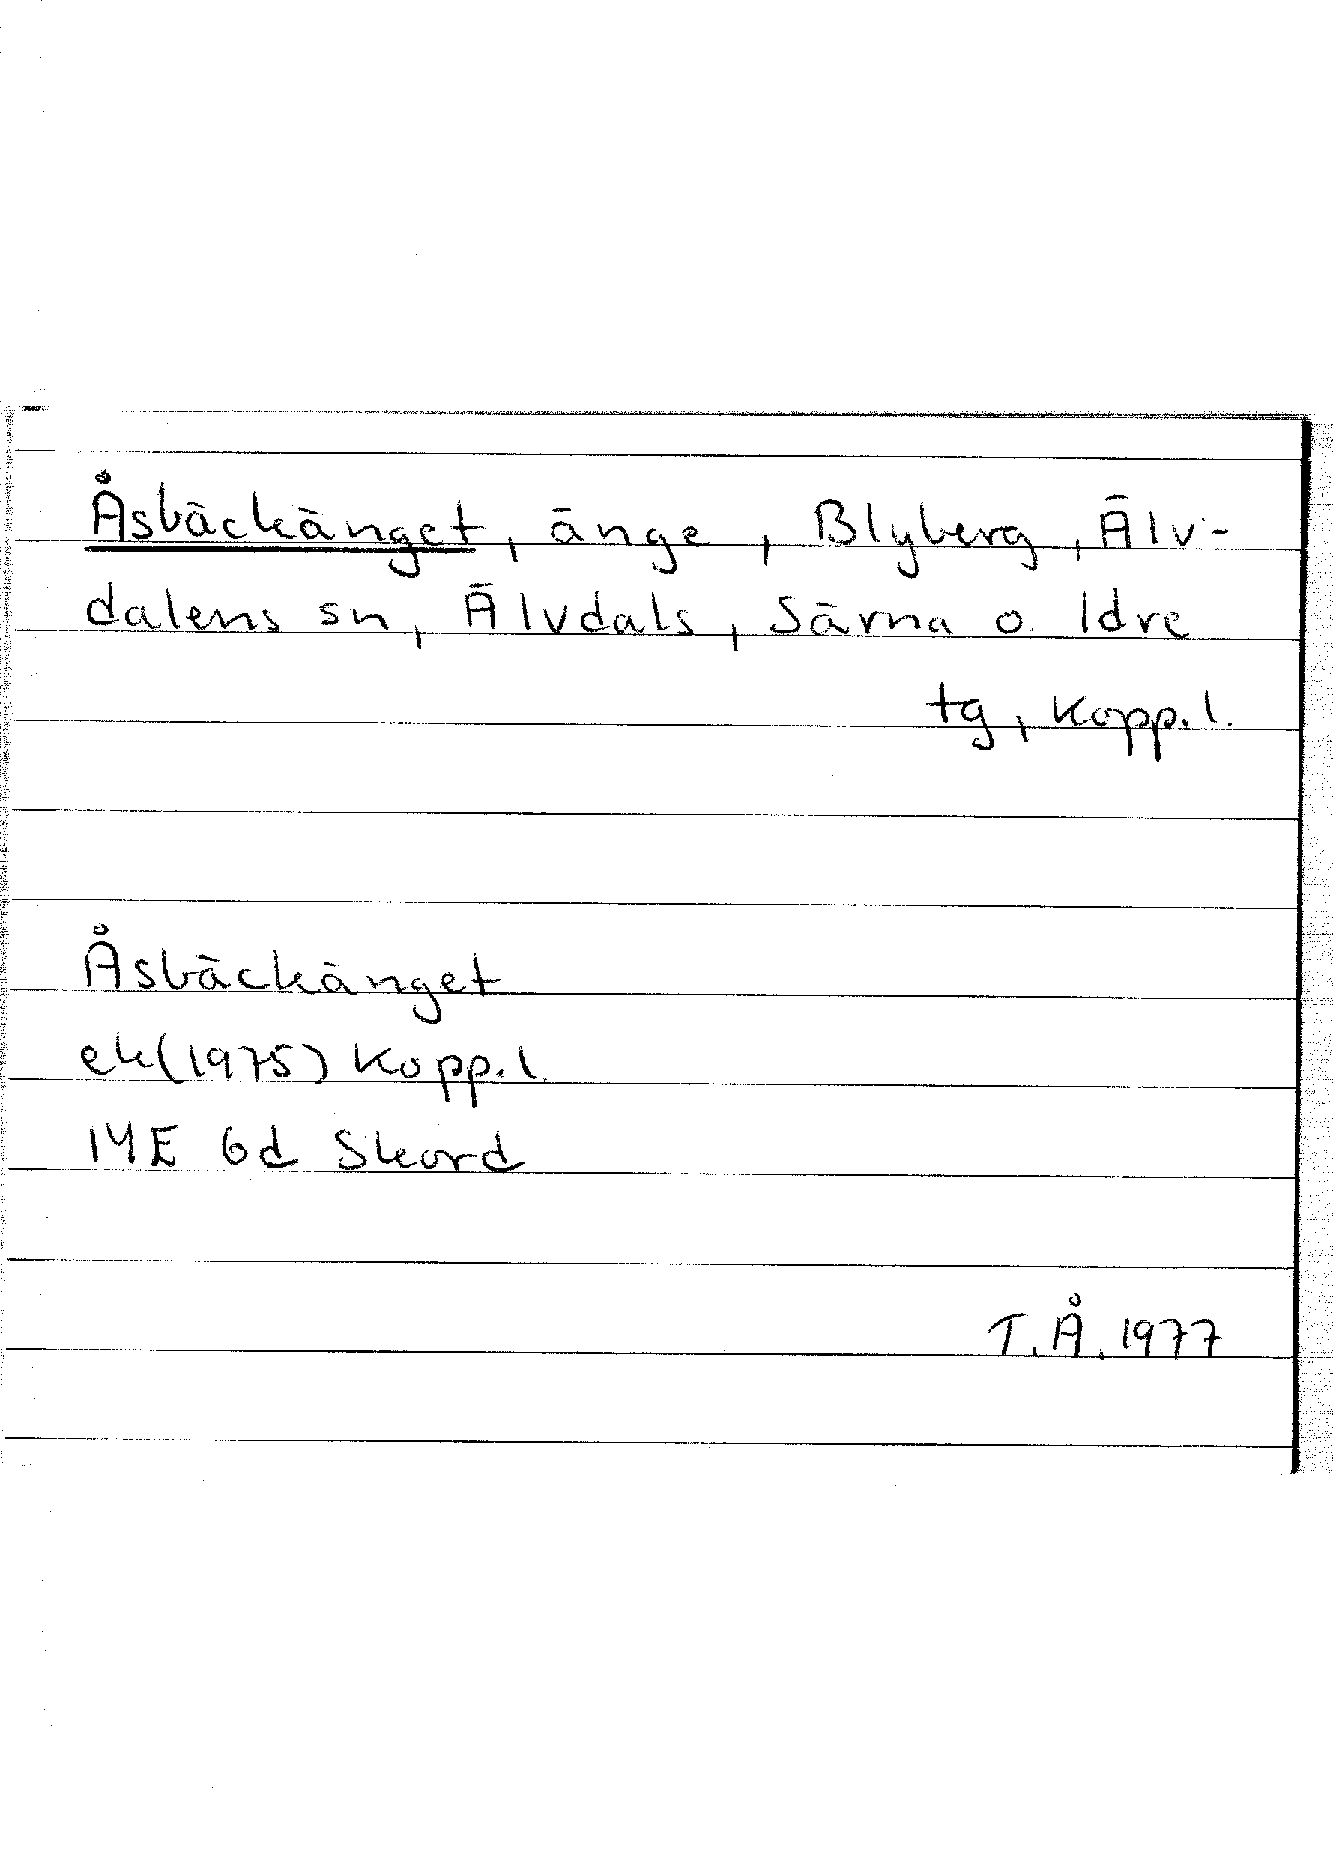 Åsbäckänget, änge, Blyberg, Älv-
dalens sn, Älvdals, Särna o. Idre
tg, Kopp.l.
Åsbäckänget
ek(1975) Kopp.l.
14E 6d Skord
T.Å. 1977